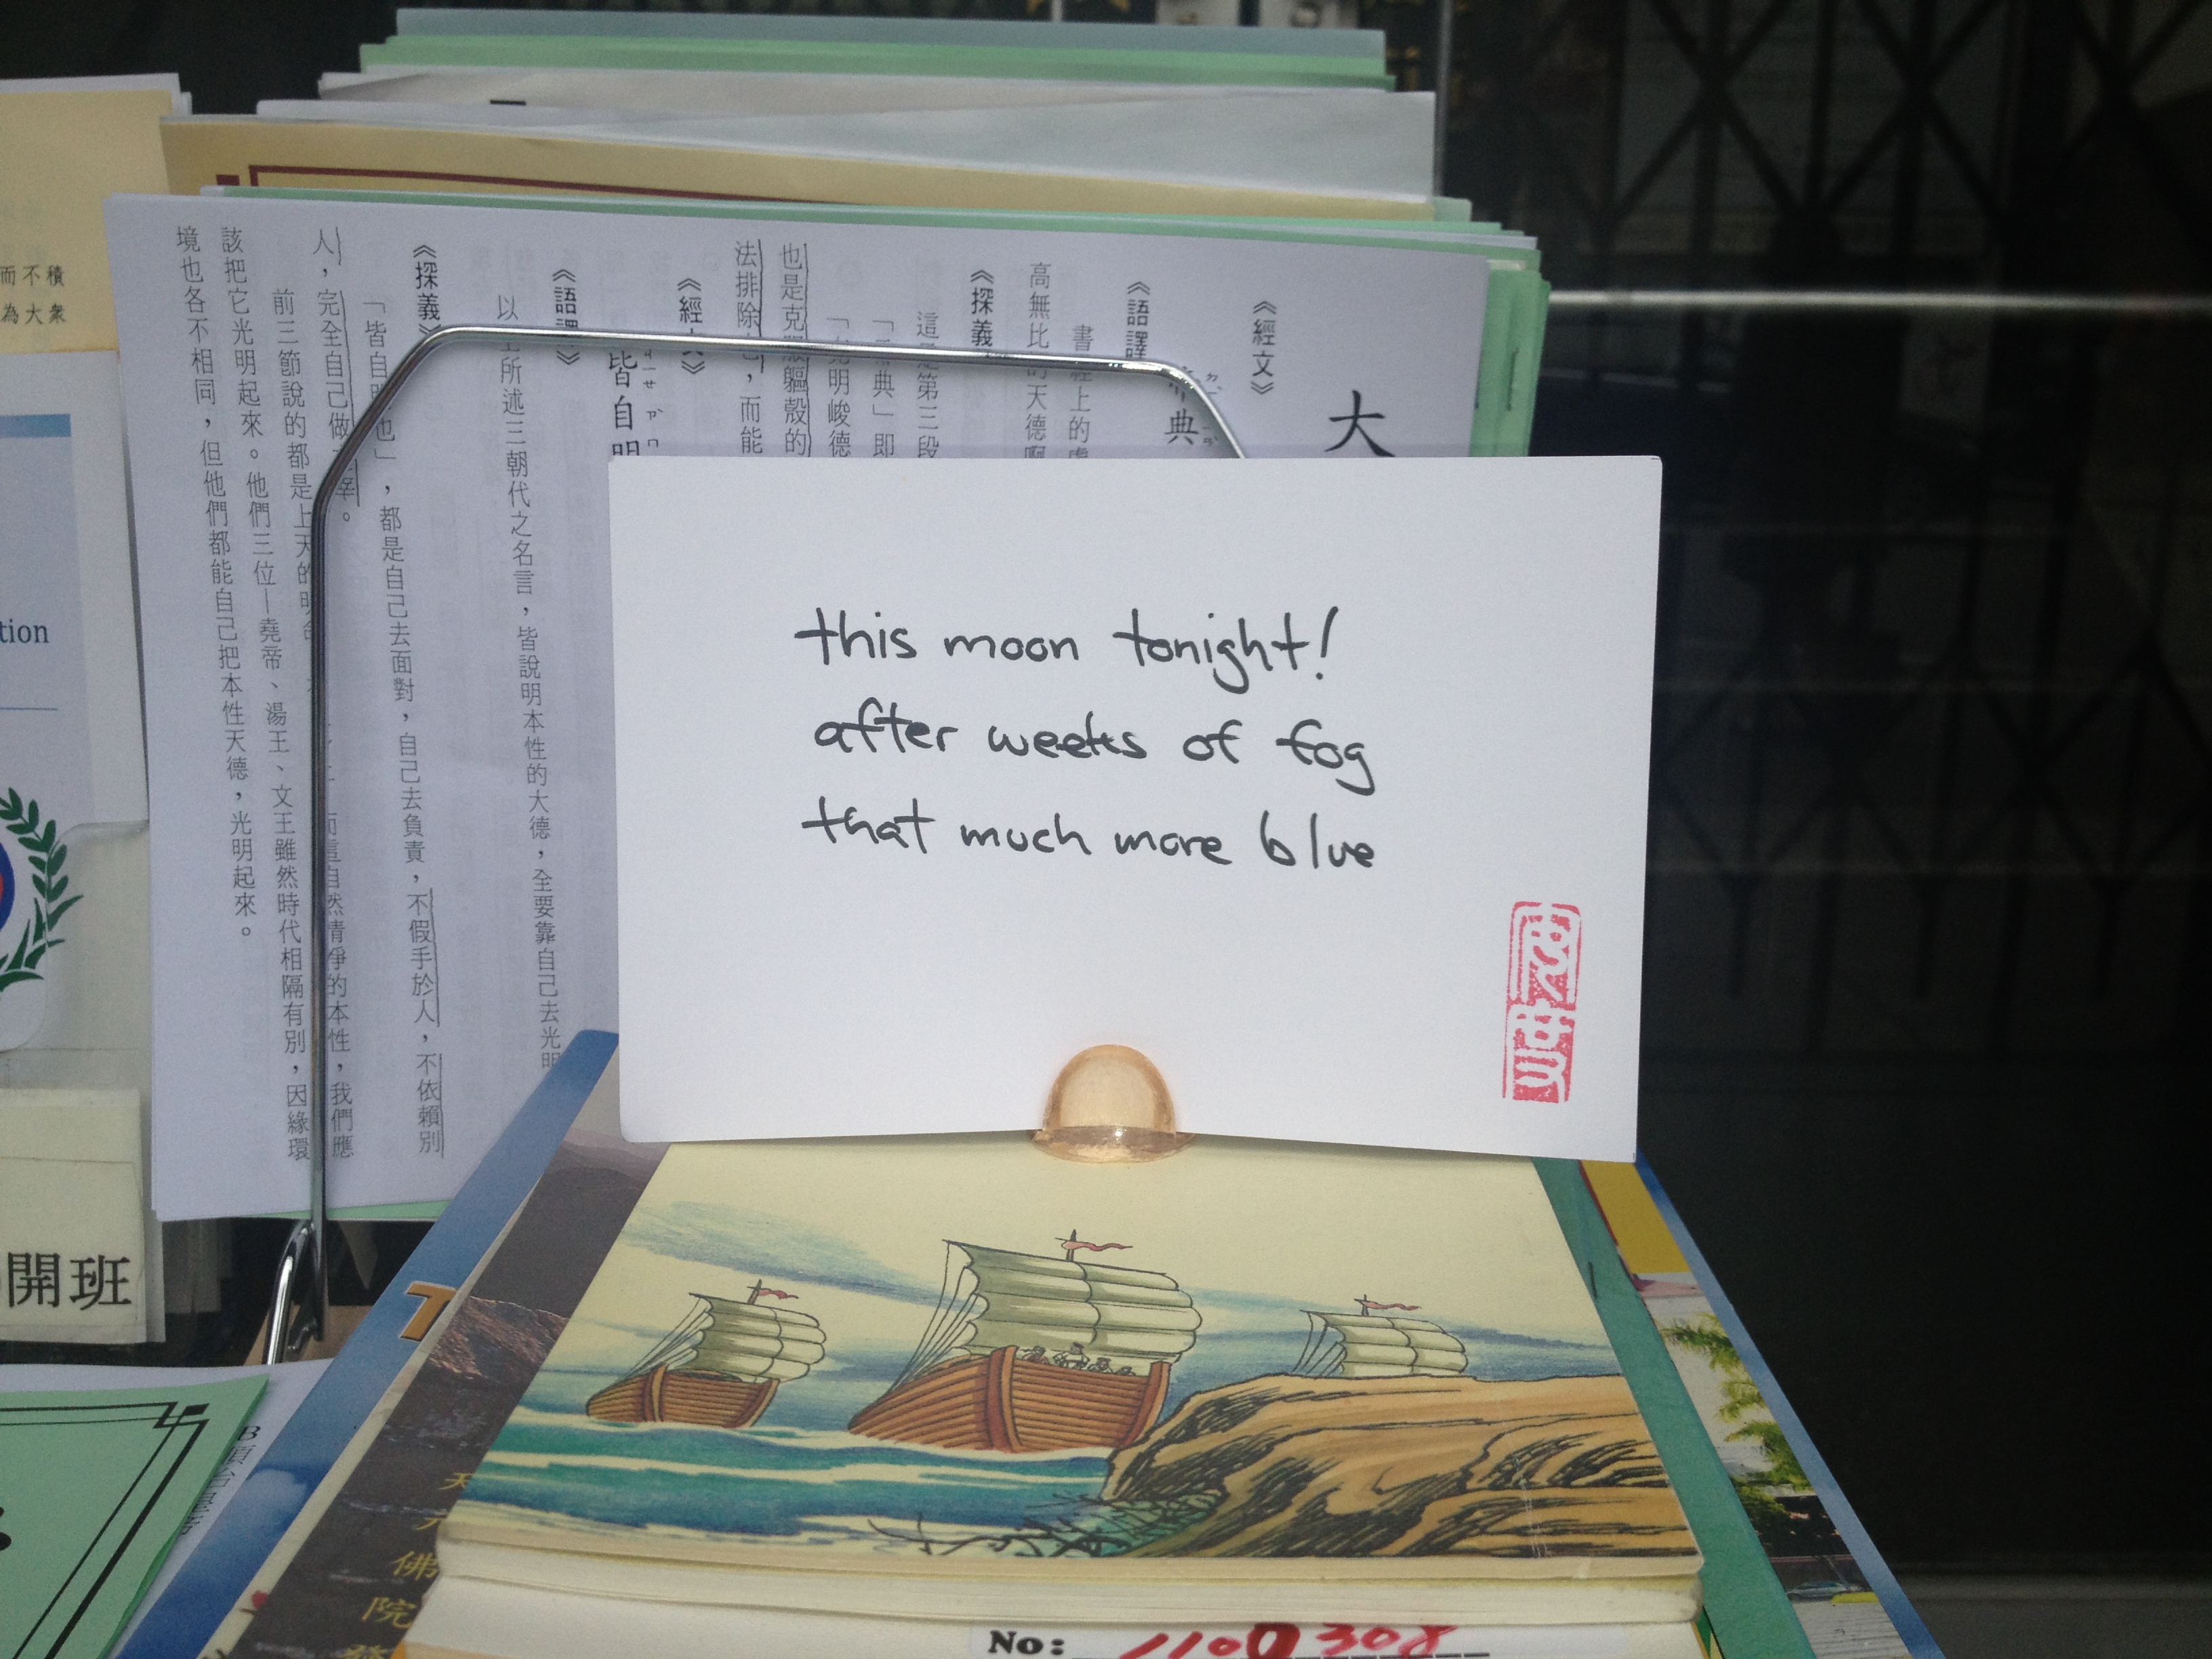 this moon tonight!
after weeks of fog
that much more blue
大
《經文》
典
《語譯
高無比的天德啊
《探義
這是第三段
典」即
克明峻德
也是克服軀殼的
法排除
，而能
《經文》
皆自明
《語譯》
以上所述三朝代之名言，皆說明本性的大德，全要靠自己去光明
《探義》
「皆自明也」，都是自己去面對，自己去負責，不假手於人，不依賴別
人，完全自己做主宰。
前三節說的都是上天的明命
自然清淨的本性，我們應
該把它光明起來。他們三位—堯帝、湯王、文王雖然時代相隔有別，因緣環
境也各不相同，但他們都能自己把本性天德，光明起來。
而不積
為大衆
tion
開班
佛
院
No: 1100308